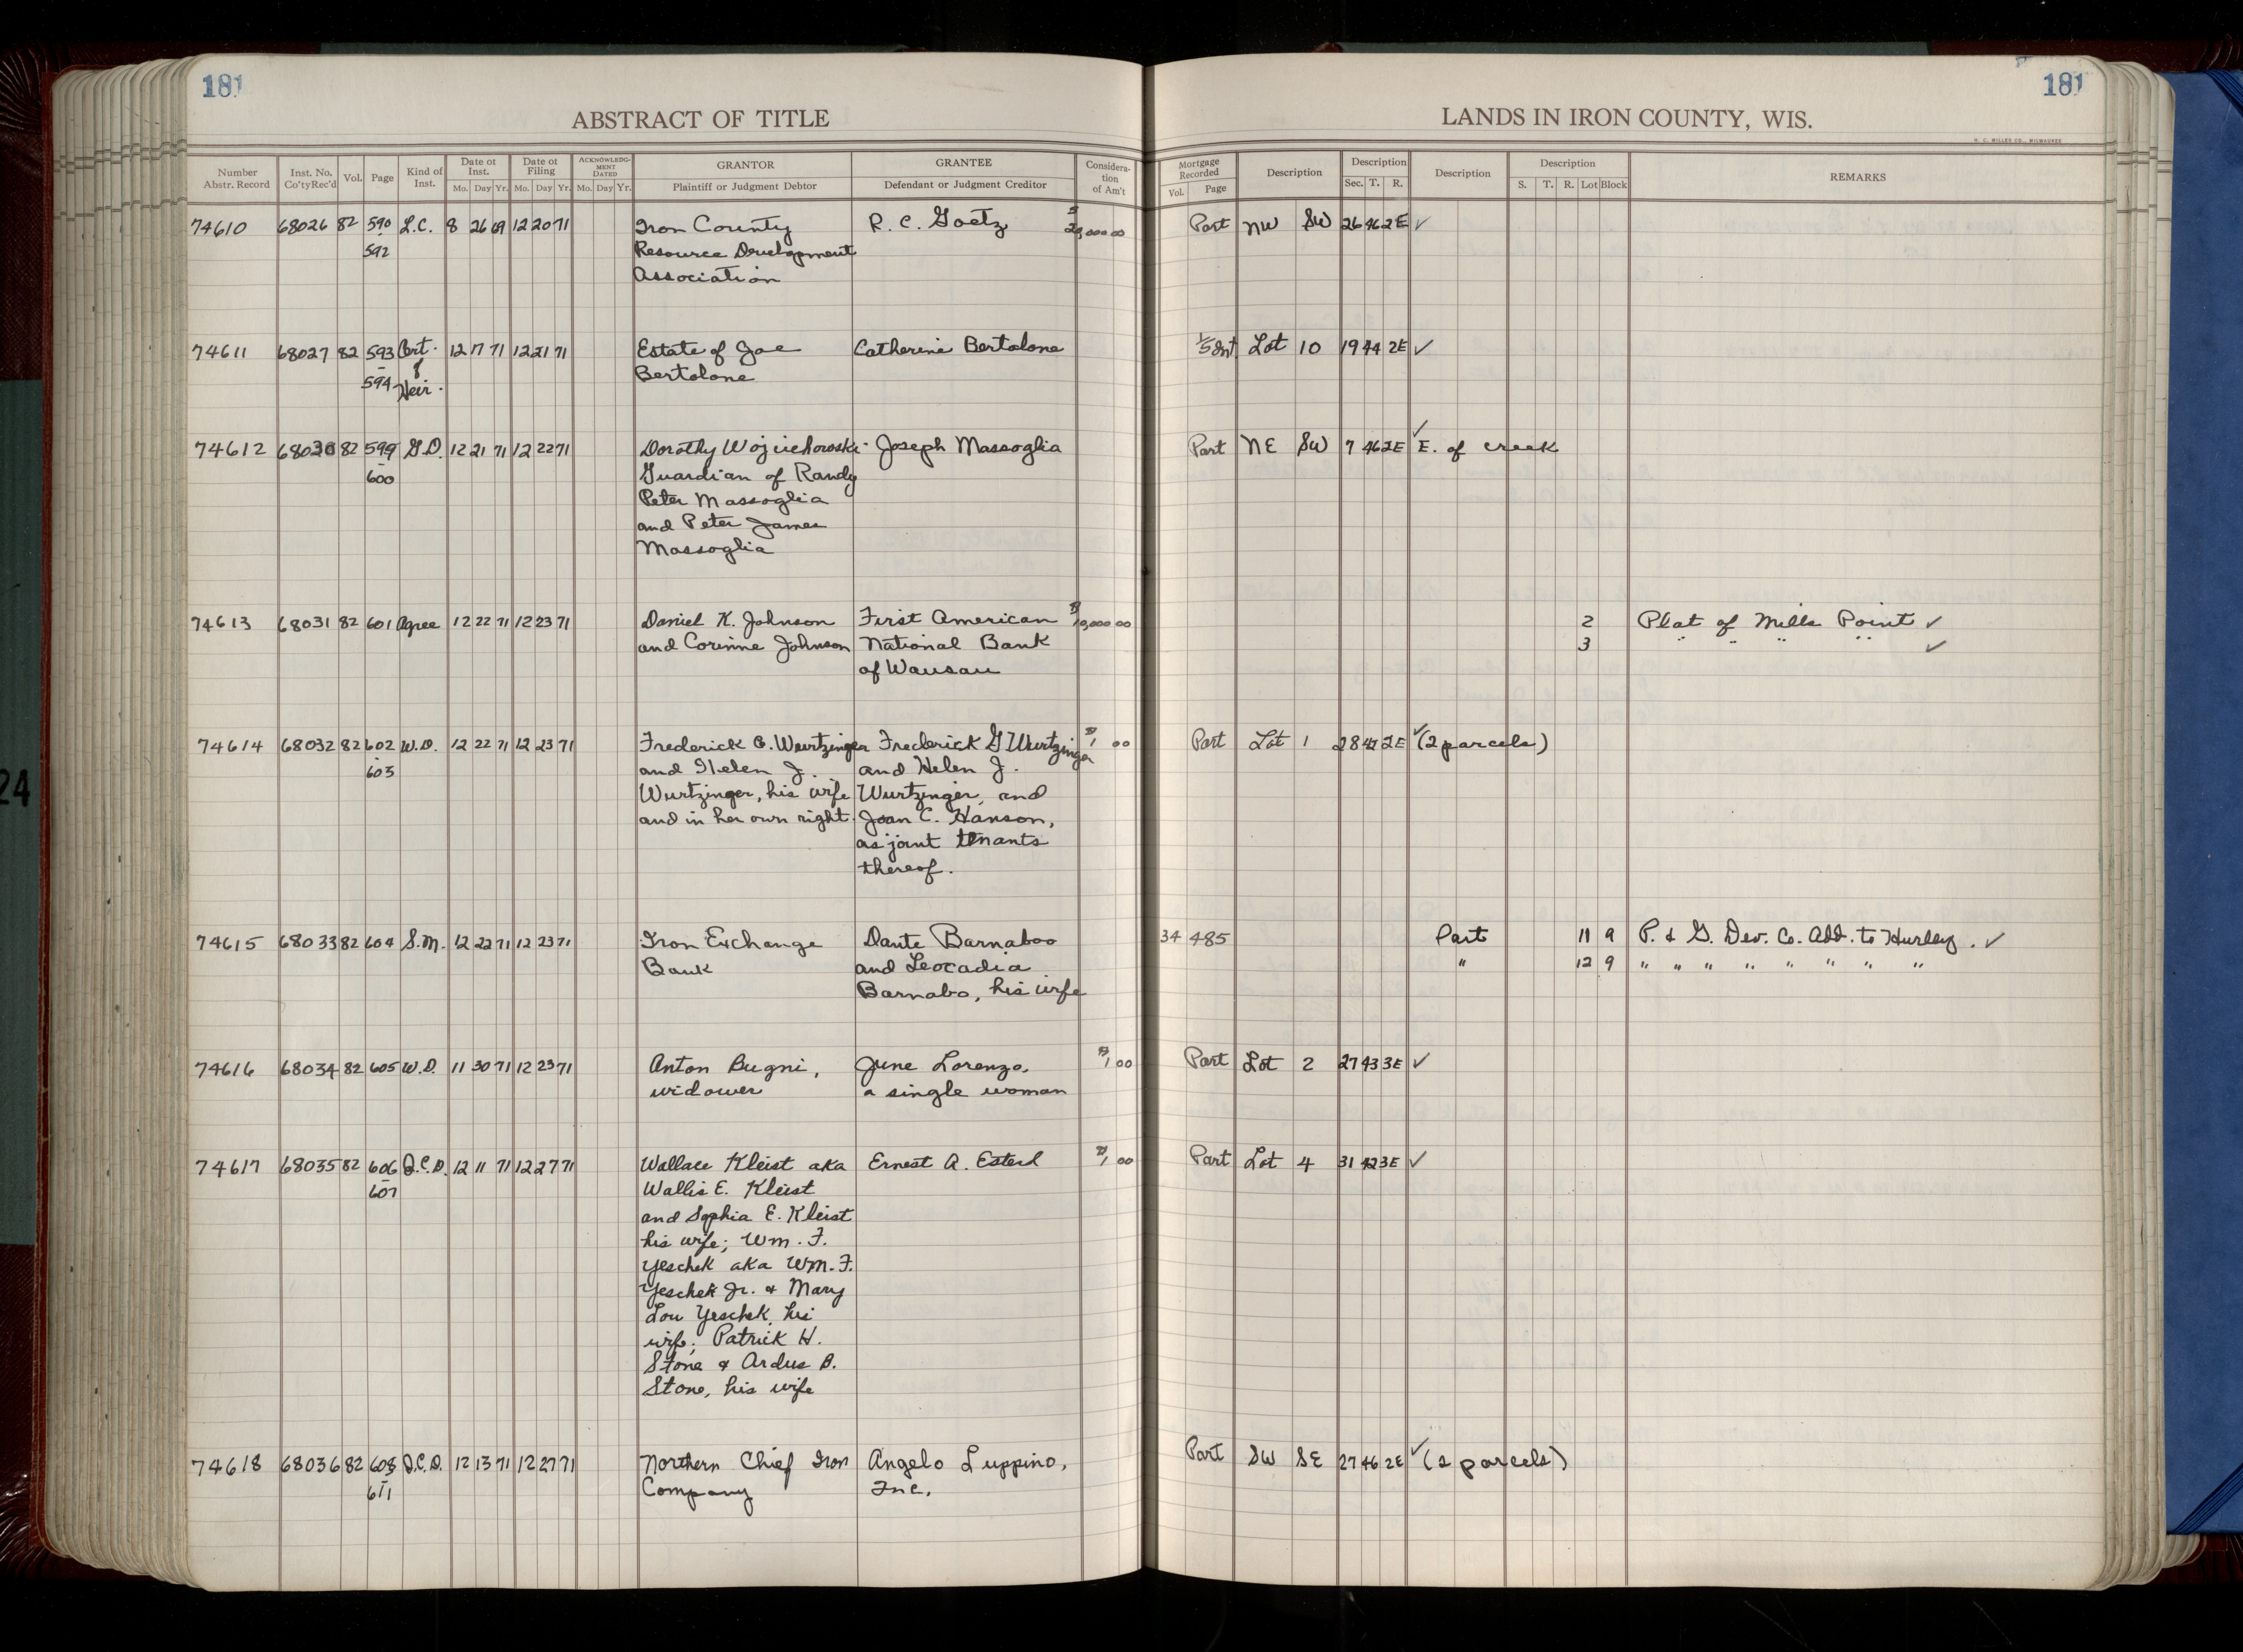 181
181
ABSTRACT OF TITLE
LANDS IN IRON COUNTY, WIS.
H. C. MILLER CO., MILWAUKEE
Number Abstr. Record Inst. No. Co'ty Rec'd Vol. Page Kind of Inst. Date of Inst. Mo. Day Yr. Date of Filing Mo. Day Yr. ACKNOWLEDGMENT DATED Mo. Day Yr. GRANTOR Plaintiff or Judgment Debtor GRANTEE Defendant or Judgment Creditor Consideration of Am't
Mortgage Recorded Vol. Page Description Description Sec. T. R. Description Description S. T. R. Lot Block REMARKS
74610 68026 82 590 L.C. 8 26 69 12 20 71 Iron County R. C. Goetz Part NW SW 26 46 2E ✓
592 Resource Development
Association
74611 68027 82 593 Cert. 12 17 71 12 21 71 Estate of Joe Catherine Bertolone 1/5 Int Lot 10 19 44 2E ✓
- of Bertolone
594 Heir.
74612 68030 82 599 G.D. 12 21 71 12 22 71 Dorothy Wojciehowski- Joseph Massoglia Part NE SW 7 46 2E ✓ E. of creek
- 600 Guardian of Randy
Peter Massoglia
and Peter James
Massoglia
74613 68031 82 601 Agree 12 22 71 12 23 71 Daniel K. Johnson First American $10,000 00 2 Plat of Mills Point ✓
and Corinne Johnson National Bank 3 " " " " ✓
of Wausau
74614 68032 82 602 W.D. 12 22 71 12 23 71 Frederick G. Wurtzinger Frederick G Wurtzinger $1 00 Part Lot 1 28 42 2E ✓ (2 parcels)
- 603 and Helen J. and Helen J.
Wurtzinger, his wife Wurtzinger, and
and in her own right. Joan C. Hanson,
as joint tenants
thereof.
74615 68033 82 604 S.M. 12 22 71 12 23 71 Iron Exchange Dante Barnaboo 34 485 Part 11 9 P. & G. Dev. Co. Add. to Hurley. ✓
Bank and Leocadia " 12 9 " " " " " " " "
Barnabo, his wife
74616 68034 82 605 W.D. 11 30 71 12 23 71 Anton Bugni, June Lorenzo, $1 00 Part Lot 2 27 43 3E ✓
widower a single woman
74617 68035 82 606 Q.C.D. 12 11 71 12 27 71 Wallace Kleist aka Ernest A. Esterl $1 00 Part Lot 4 31 42 3E ✓
- 607 Wallis E. Kleist
and Sophia E. Kleist
his wife; Wm. F.
Yeschek aka Wm. F.
Yeschek Jr. & Mary
Lou Yeschek, his
wife; Patrick H.
Stone & Ardus B.
Stone, his wife
74618 68036 82 608 Q.C.D. 12 13 71 12 27 71 Northern Chief Iron Angelo Luppino, Part SW SE 27 46 2E ✓ (2 parcels)
- 611 Company Inc.